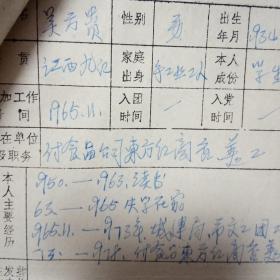 性别 男 出生年月 1934
贯 江西九江 家庭出身 手工业工人 本人成份 学生
加工作时间 1965.11. 入团时间 / 入党时间 /
在单位 职务 付食品公司東方红商店 美工
本人主要经历
1950.——1963.读书
63.——1965 失学在家
1965.11.——1973年 城建局、市文工团工
73.——1975. 付食品東方红商店美